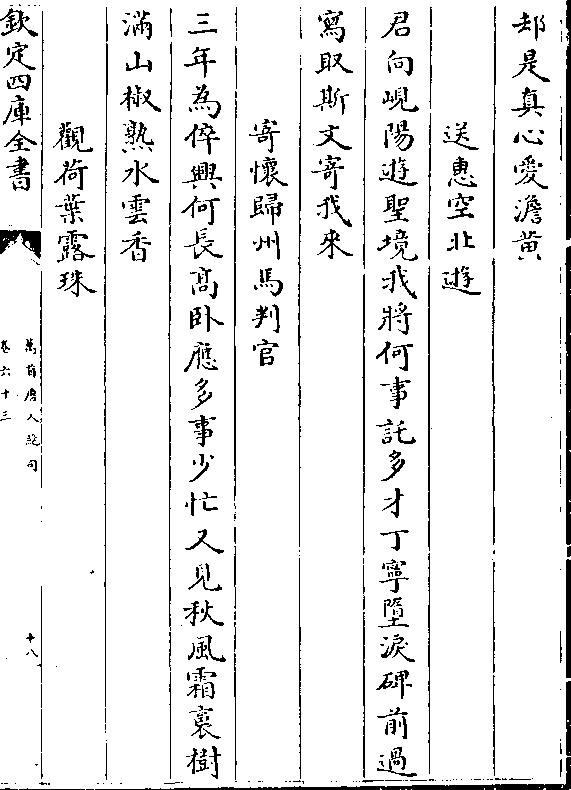 却是真心愛澹黄
送惠空北遊
君向峴陽遊聖境我將何事託多才丁寧墮淚碑前過
寫取斯文寄我來
寄懷歸州馬判官
三年為倅興何長高卧應多事少忙又見秋風霜裛樹
滿山椒熟水雲香
觀荷葉露珠
欽定四庫全書
萬首唐人絶句
卷六十三
十八